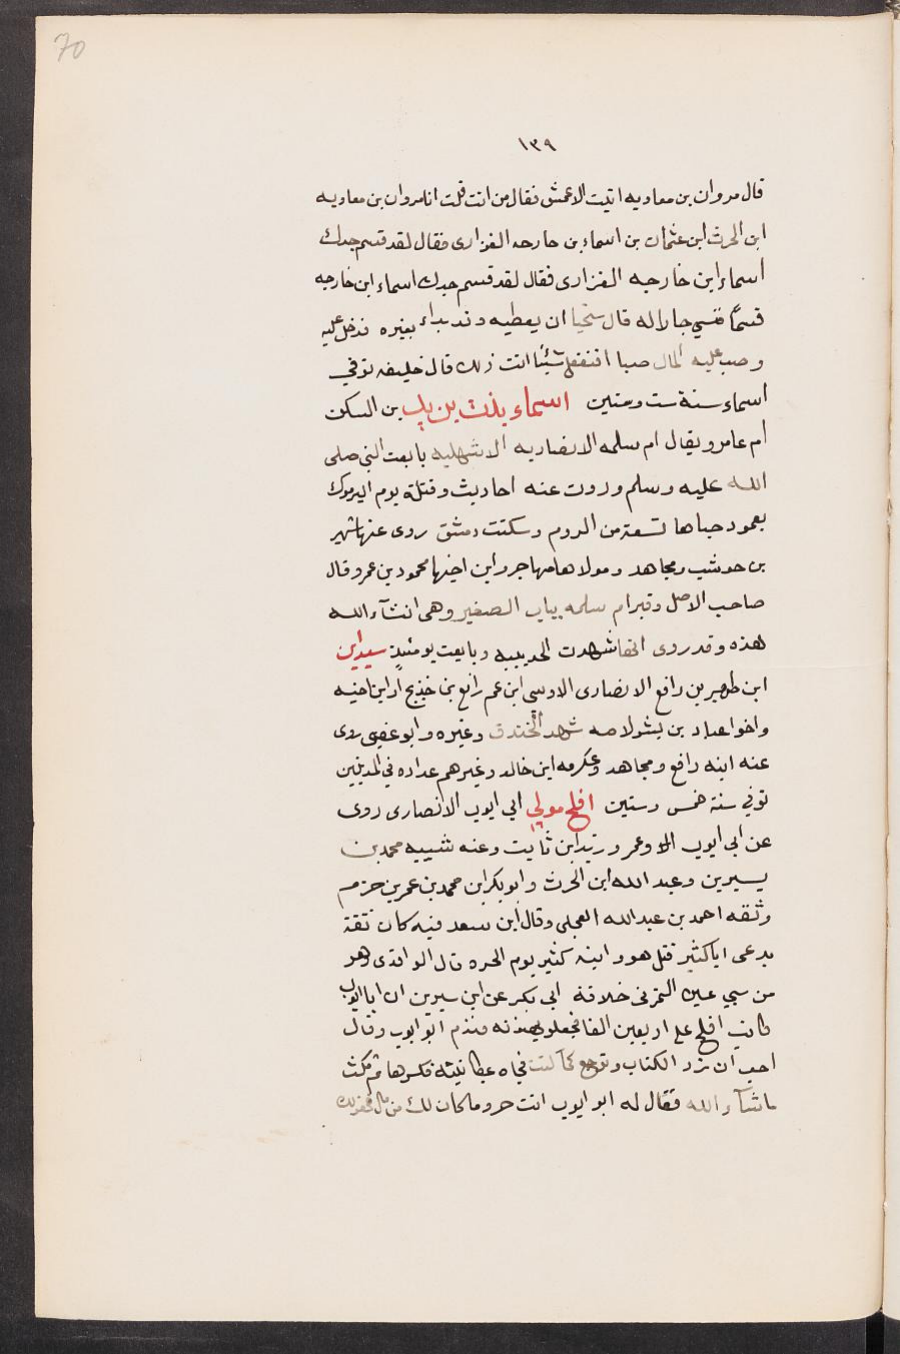 70
١٣٩
قال مروان بن معاويه اتيت الاعمش فقال من انت قلت انا مروان بن معاويه
ابن الحرث ابن عثمان بن اسماء بن حارحه الفزارى فقال لقد قسم جدك
اسماء ابن خارجه الفزارى فقال لقد قسم جدك اسماء ابن خارجه
قسمًا فنسي جارا له قال ان يعطيه وقد بداء بغيره فدخل عليه
وصب عليه المال صبا افتفعل شيئًا انت ذلك قال خليفه توفي
اسماء سنة ست وستين اسماء بنت بن يزيد بن السكن
ام عامر ويقال ام سلمه الانصاريه الاشهليه بايعت النبي صلى
الله عليه وسلم وروت عنه احاديث وقتلة يوم اليرموك
بعمود حباها تسعة من الروم وسكنت دمشق روى عنها شهر
بن حوشب ومجاهد ومولاها مهاجر وابن اخيها محمود بن عمرو قال
صاحب الاصل وقبر ام سلمه بباب الصغير وهى انشآء الله
هذه وقد روى انها شهدت الحديبيه وبايعت يومئيذٍ
ابن ظهير بن رافع الانصارى الاوسى ابن عم رافع بن خديج او ابن اخيه
واخو عباد بن بشر لامه شهد الخندق وغيره وابو عفيى روى
عنه ابنه رافع ومجاهد وعكرمه ابن خالد وغيرهم عداده في المدينين
توفي سنة خمس وستين افلح مولى ابي ايوب الانصارى روى
عن ابى ايوب وعمر وزيد ابن ثابت وعنه محمد بن
سيرين وعبد الله ابن الحرث وابو بكر ابن محمد بن عمر بن حزم
وثقه احمد بن عبد الله العجلى وقال ابن سعد فيه كان ثقة
يدعى ابا كثير قتل هو وابنه كثير يوم الحره قال الواقدى وهو
من سبي عين التمر في خلافة ابي بكر عن ابن سيرين ان ابا ايوب
كاتب افلح على اربعين الفا فجعلو يهنونه فندم ابو ايوب وقال
احب ان ترد الكتاب وترجع كما كنت فجاه بمكاتبته فكسرها ثم مكث
ماشآء الله فقال له ابو ايوب انت حر وما كان لك من مال فهو لك